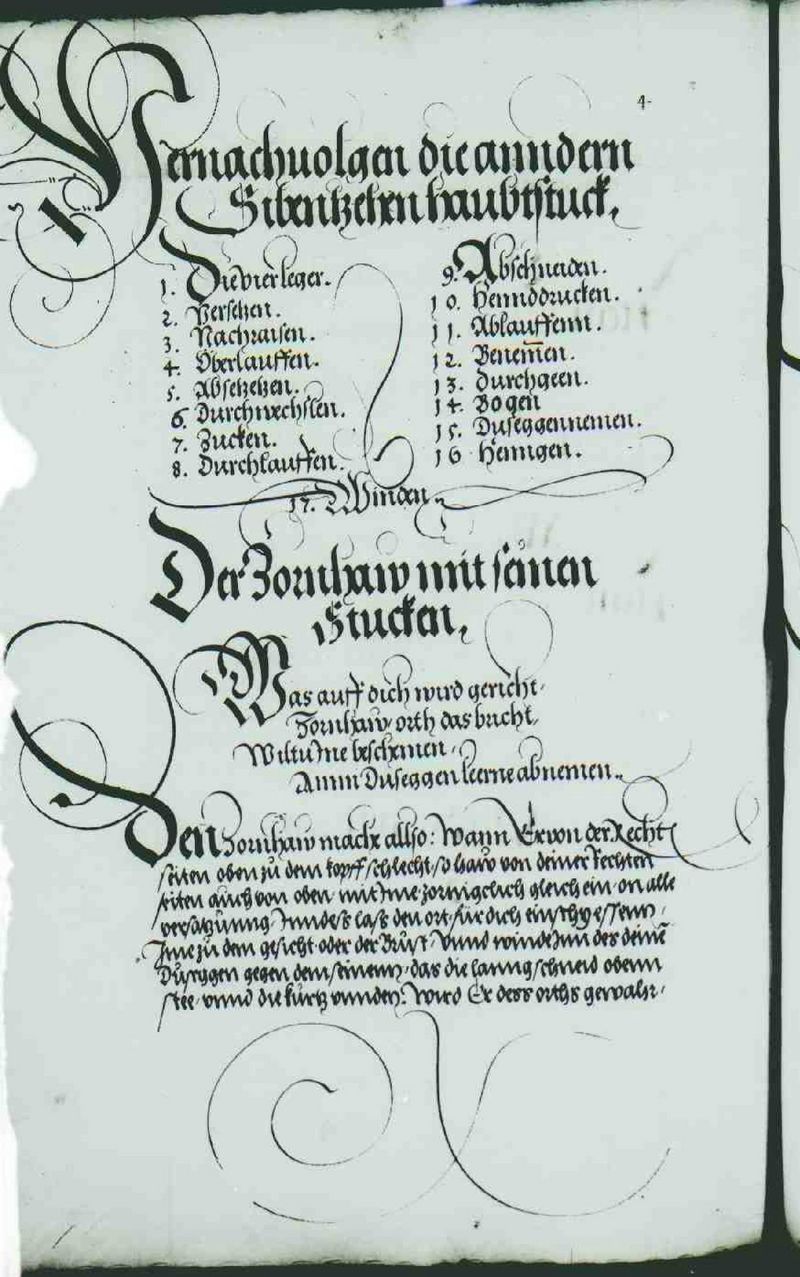 4
Hernachuolgen die anndern
Sibentzehen haubtstuck.
1. Die vier leger.
2. Versetzen.
3. Nachraisen.
4. Oberlauffen.
5. Absetzetzen.
6. Durchwechslen.
7. Zucken.
8. Durchlauffen.
9. Abschneiden.
10. Hennddrucken.
11. Ablauffenn.
12. Beneme͂n.
13. Durchgeen.
14. Bogen
15. Duseggennemen.
16 Henngen.
17. Winden
Der Zornhaw mit seinen
Stucken.
Was auff dich wird gericht
Zornhaw orth das bricht,
Wiltu Ine beschemen
Ainm Duseggen leerne abnemen
Den Zornhaw mach allso: Wann Er von der Recht
seiten oben zu dem kopff schlecht, so haw von deiner rechten
seiten auch von oben mit Ime zornigclich gleich ein on alle
versatzunng Inndess lass den ort für dich einschyessenn
Ime zu dem gesicht oder der Brust Vnnd winde Inn des deine͂
Dusyggen gegen dem seinenn das die lanng schneid obenn
stee vnnd die kurtz vnnden: Wird Er dess orths gewahr